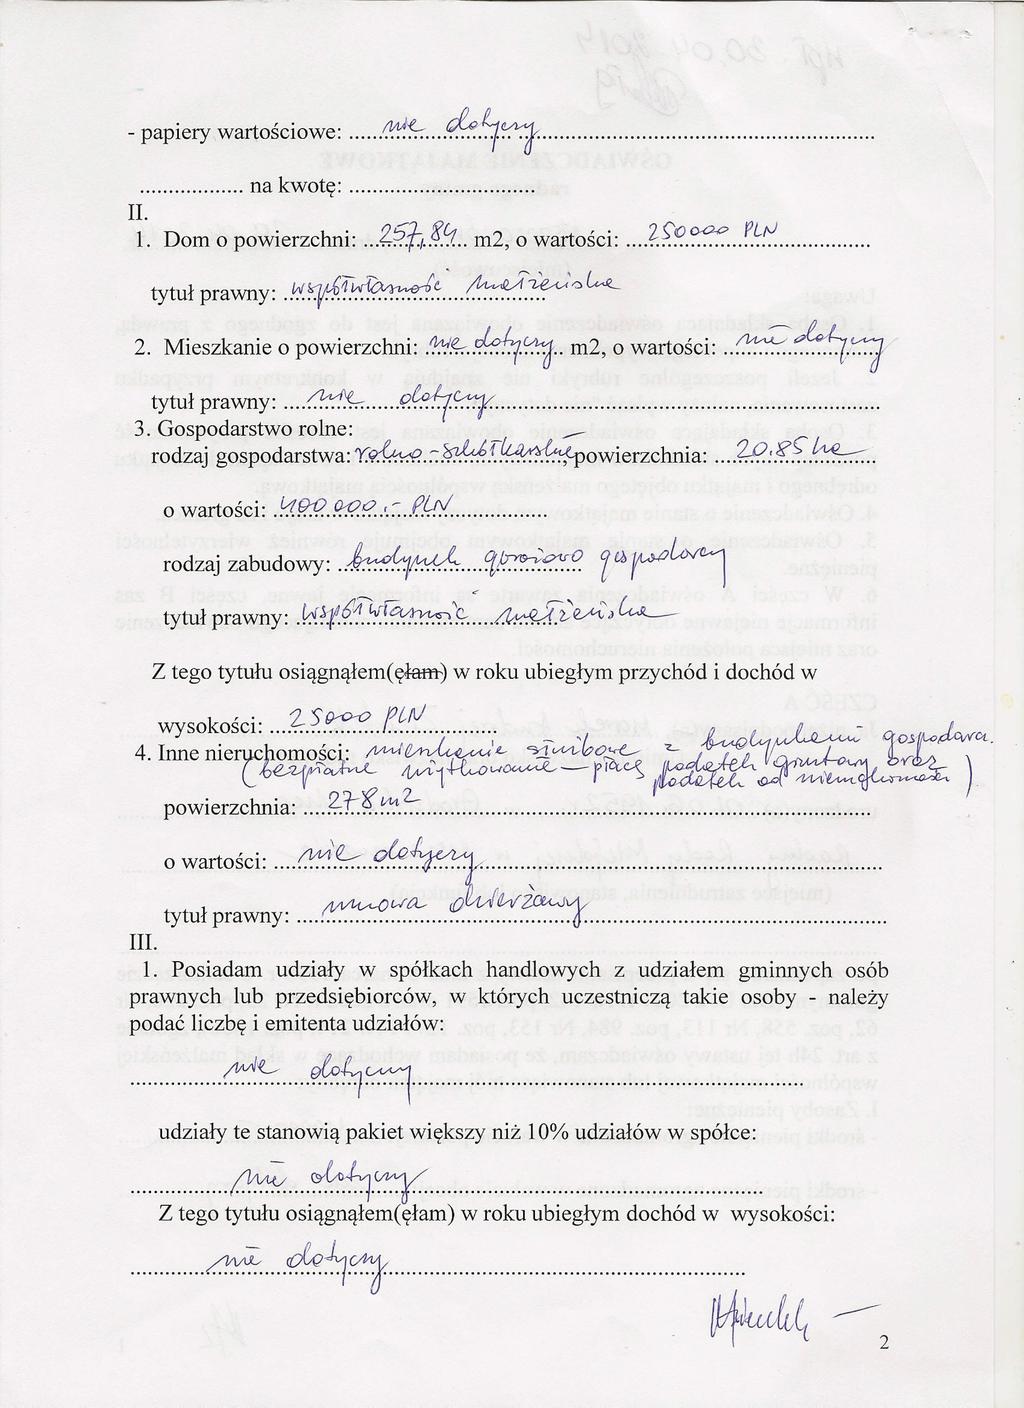 - papiery wartościowe: ......nie dotyczy......
.................. na kwotę: ................................
II.
1. Dom o powierzchni: ...257,84... m2, o wartości: ....250000 PLN....
tytuł prawny: ...współwłasność małżeńska
2. Mieszkanie o powierzchni: ..nie dotyczy.. m2, o wartości: ..nie dotyczy
tytuł prawny: ....nie dotyczy....
3. Gospodarstwo rolne:
rodzaj gospodarstwa: rolno - szkółkarskie, powierzchnia: ...20,85 ha...
o wartości: .400 000,- PLN....
rodzaj zabudowy: ..budynek garażowo gospodarczy
tytuł prawny: ..współwłasność małżeńska
Z tego tytułu osiągnąłem(ęłam) w roku ubiegłym przychód i dochód w
wysokości: ...25000 PLN....
4. Inne nieruchomości: mieszkanie służbowe z budynkami gospodarcz.
(bezpłatne użytkowanie – płacę podatek gruntowy oraz
podatek od nieruchomości)
powierzchnia: ....278 m2....
o wartości: ....nie dotyczy....
tytuł prawny: ....umowa dzierżawy....
III.
1. Posiadam udziały w spółkach handlowych z udziałem gminnych osób
prawnych lub przedsiębiorców, w których uczestniczą takie osoby - należy
podać liczbę i emitenta udziałów:
....nie dotyczy....
udziały te stanowią pakiet większy niż 10% udziałów w spółce:
....nie dotyczy....
Z tego tytułu osiągnąłem(ęłam) w roku ubiegłym dochód w wysokości:
....nie dotyczy....
2